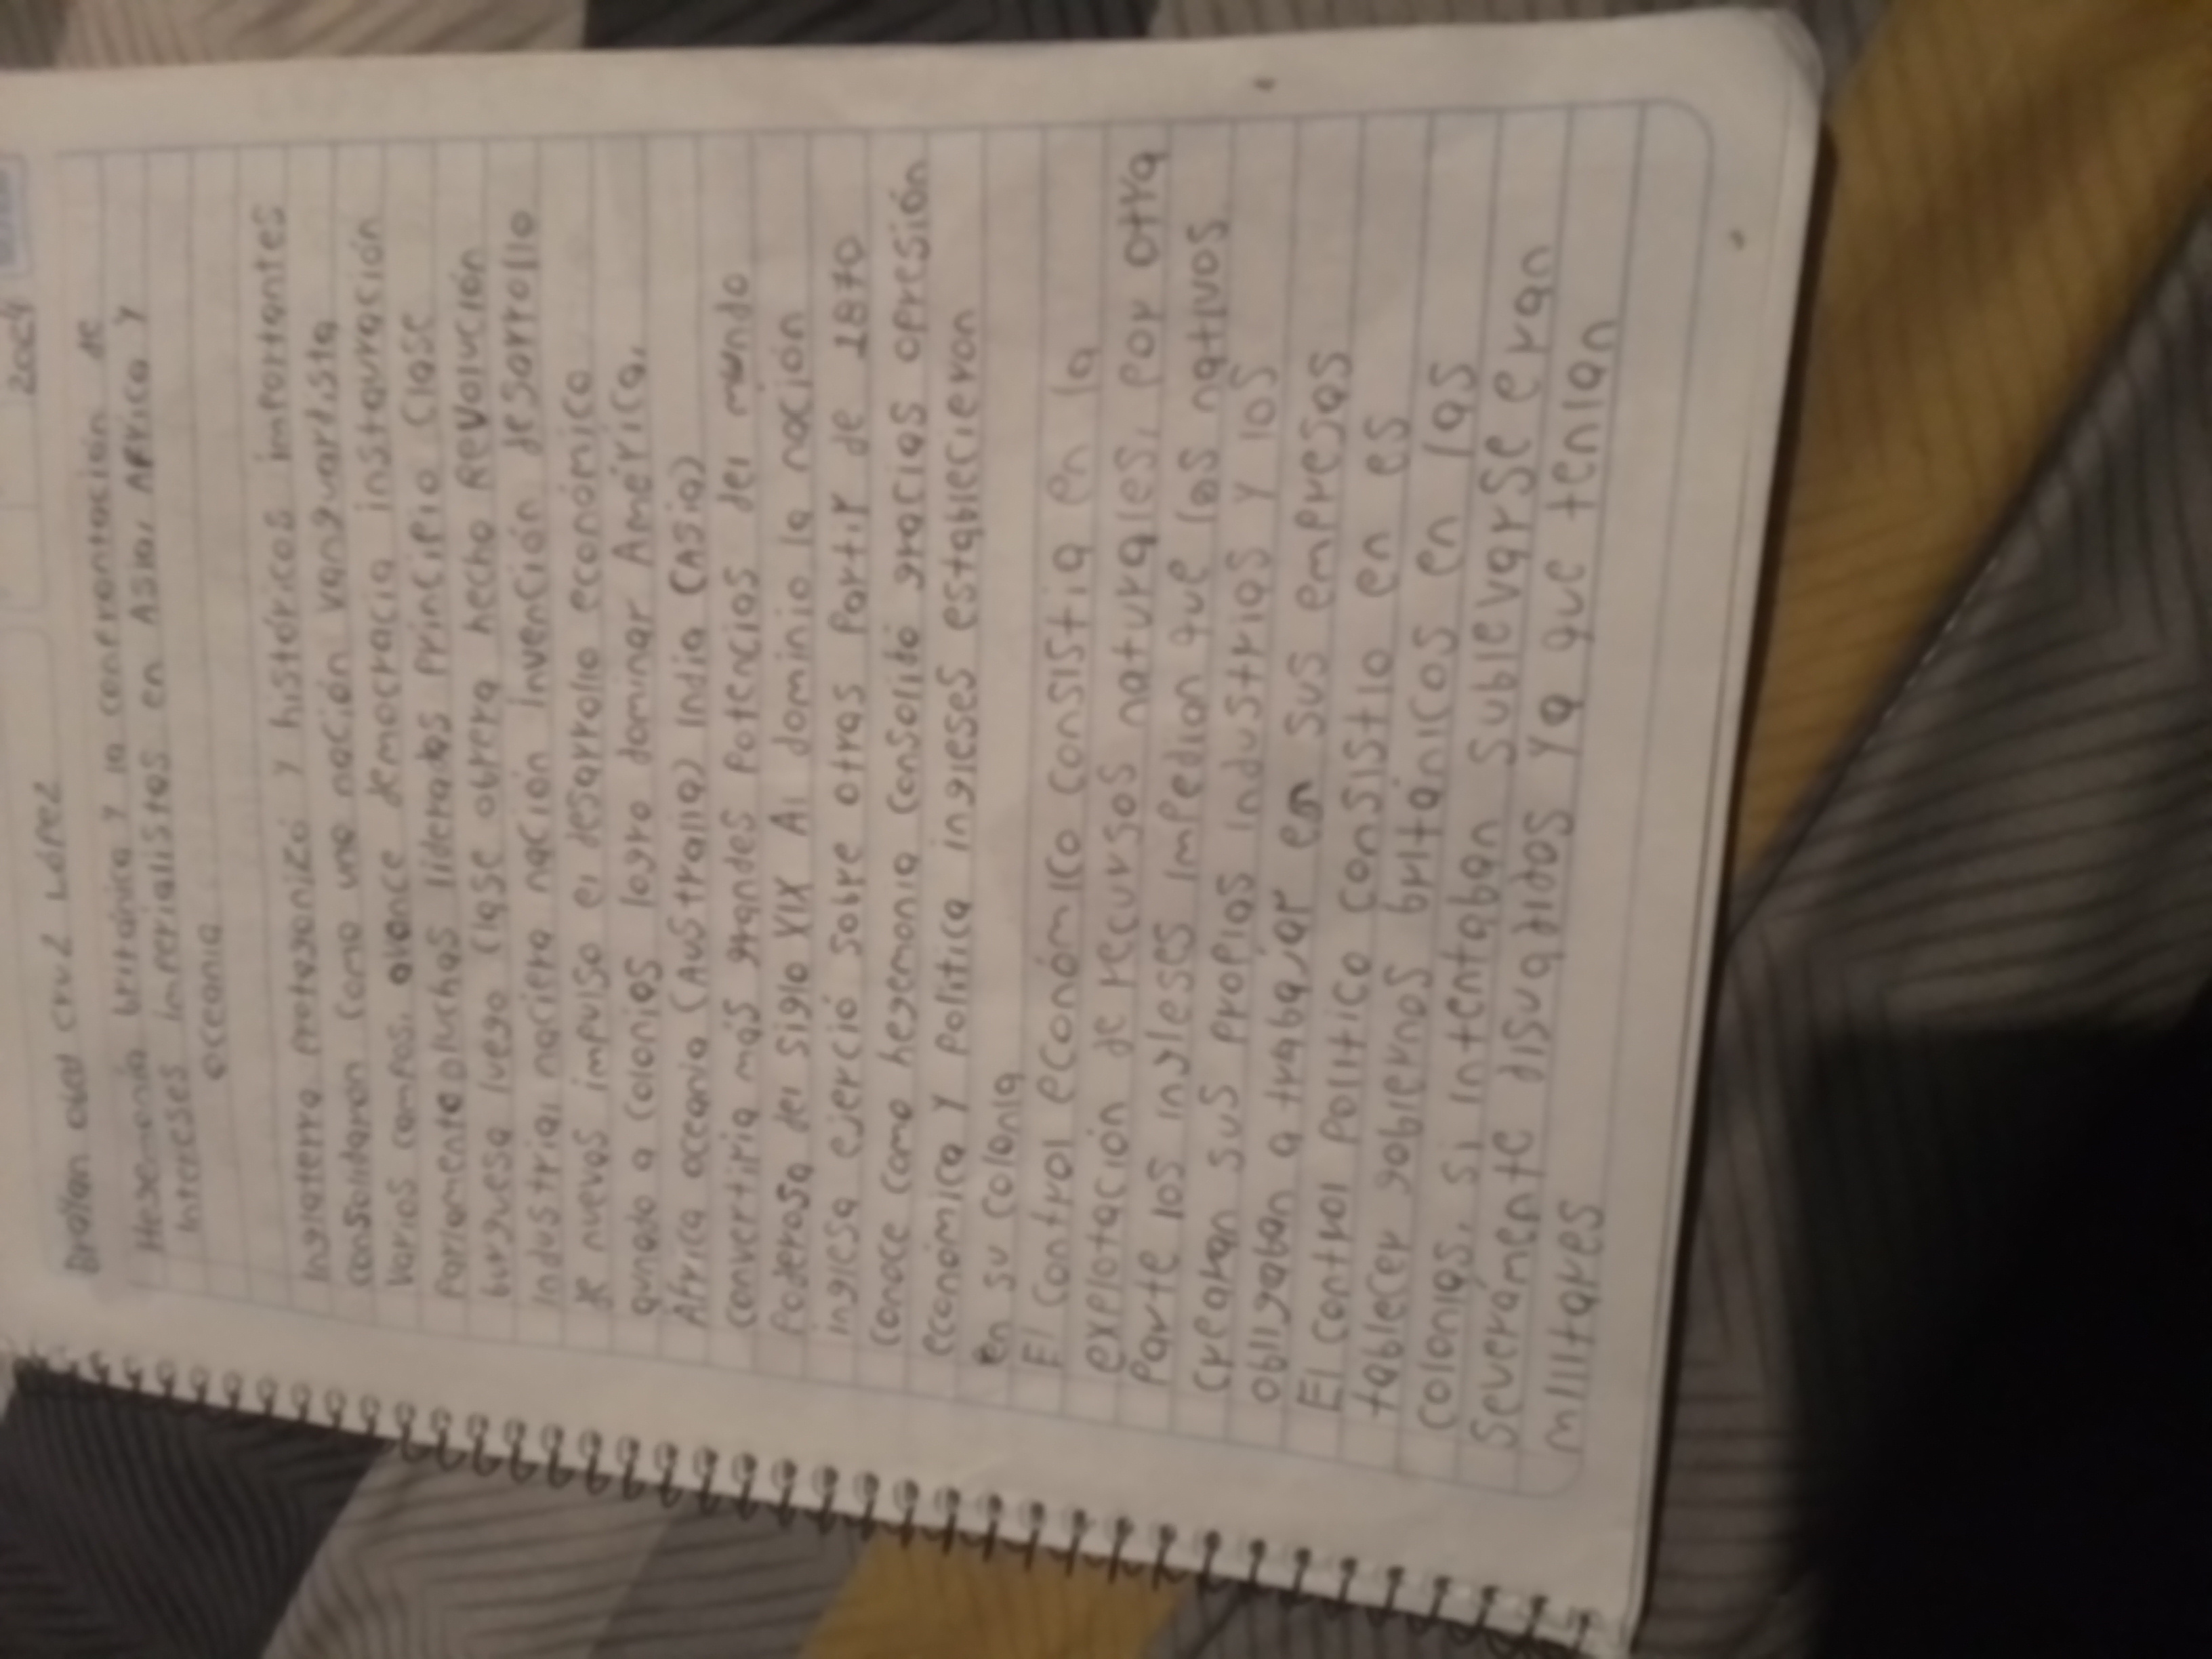 Cruz López
Hegemonía británica y la confrontación de
intereses imperialistas en Asia, África y
oceanía
Inglaterra protagonizó y históricos importantes
consolidaron como una nación vanguardista
varios campos, avance democracia instauración
Parlamento luchas liberales principio clase
burguesa luego clase obrera hecho Revolución
industrial naciera nación invención desarrollo
de nuevos impulso el desarrollo económico
aunado a colonias logro dominar América,
África oceanía (Australia) India (Asia)
convertiría más grandes Potencias del mundo
Poderosa del siglo XIX Al dominio la nación
inglesa ejerció sobre otras Partir de 1870
conoce como hegemonía consolidó gracias opresión
económica y política ingleses establecieron
en su colonia
El Control económico consistia en la
explotación de recursos naturales, por otra
Parte los ingleses impedian que los nativos
crearan sus propias industrias y los
obligaban a trabajar en sus empresas
El control Politico consistio en es
tablecer gobiernos británicos en las
colonias, si intentaban sublevarse eran
severamente disuadidos ya que tenian
militares